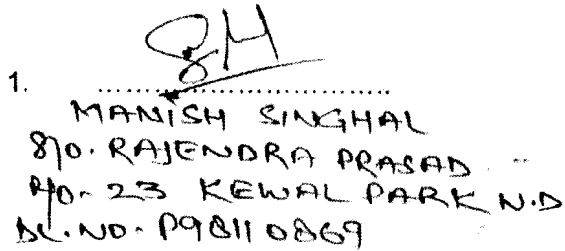 1. ..............................
MANISH SINGHAL
S/O. RAJENDRA PRASAD
R/O- 23 KEWAL PARK N.D
DL.NO- P98110869